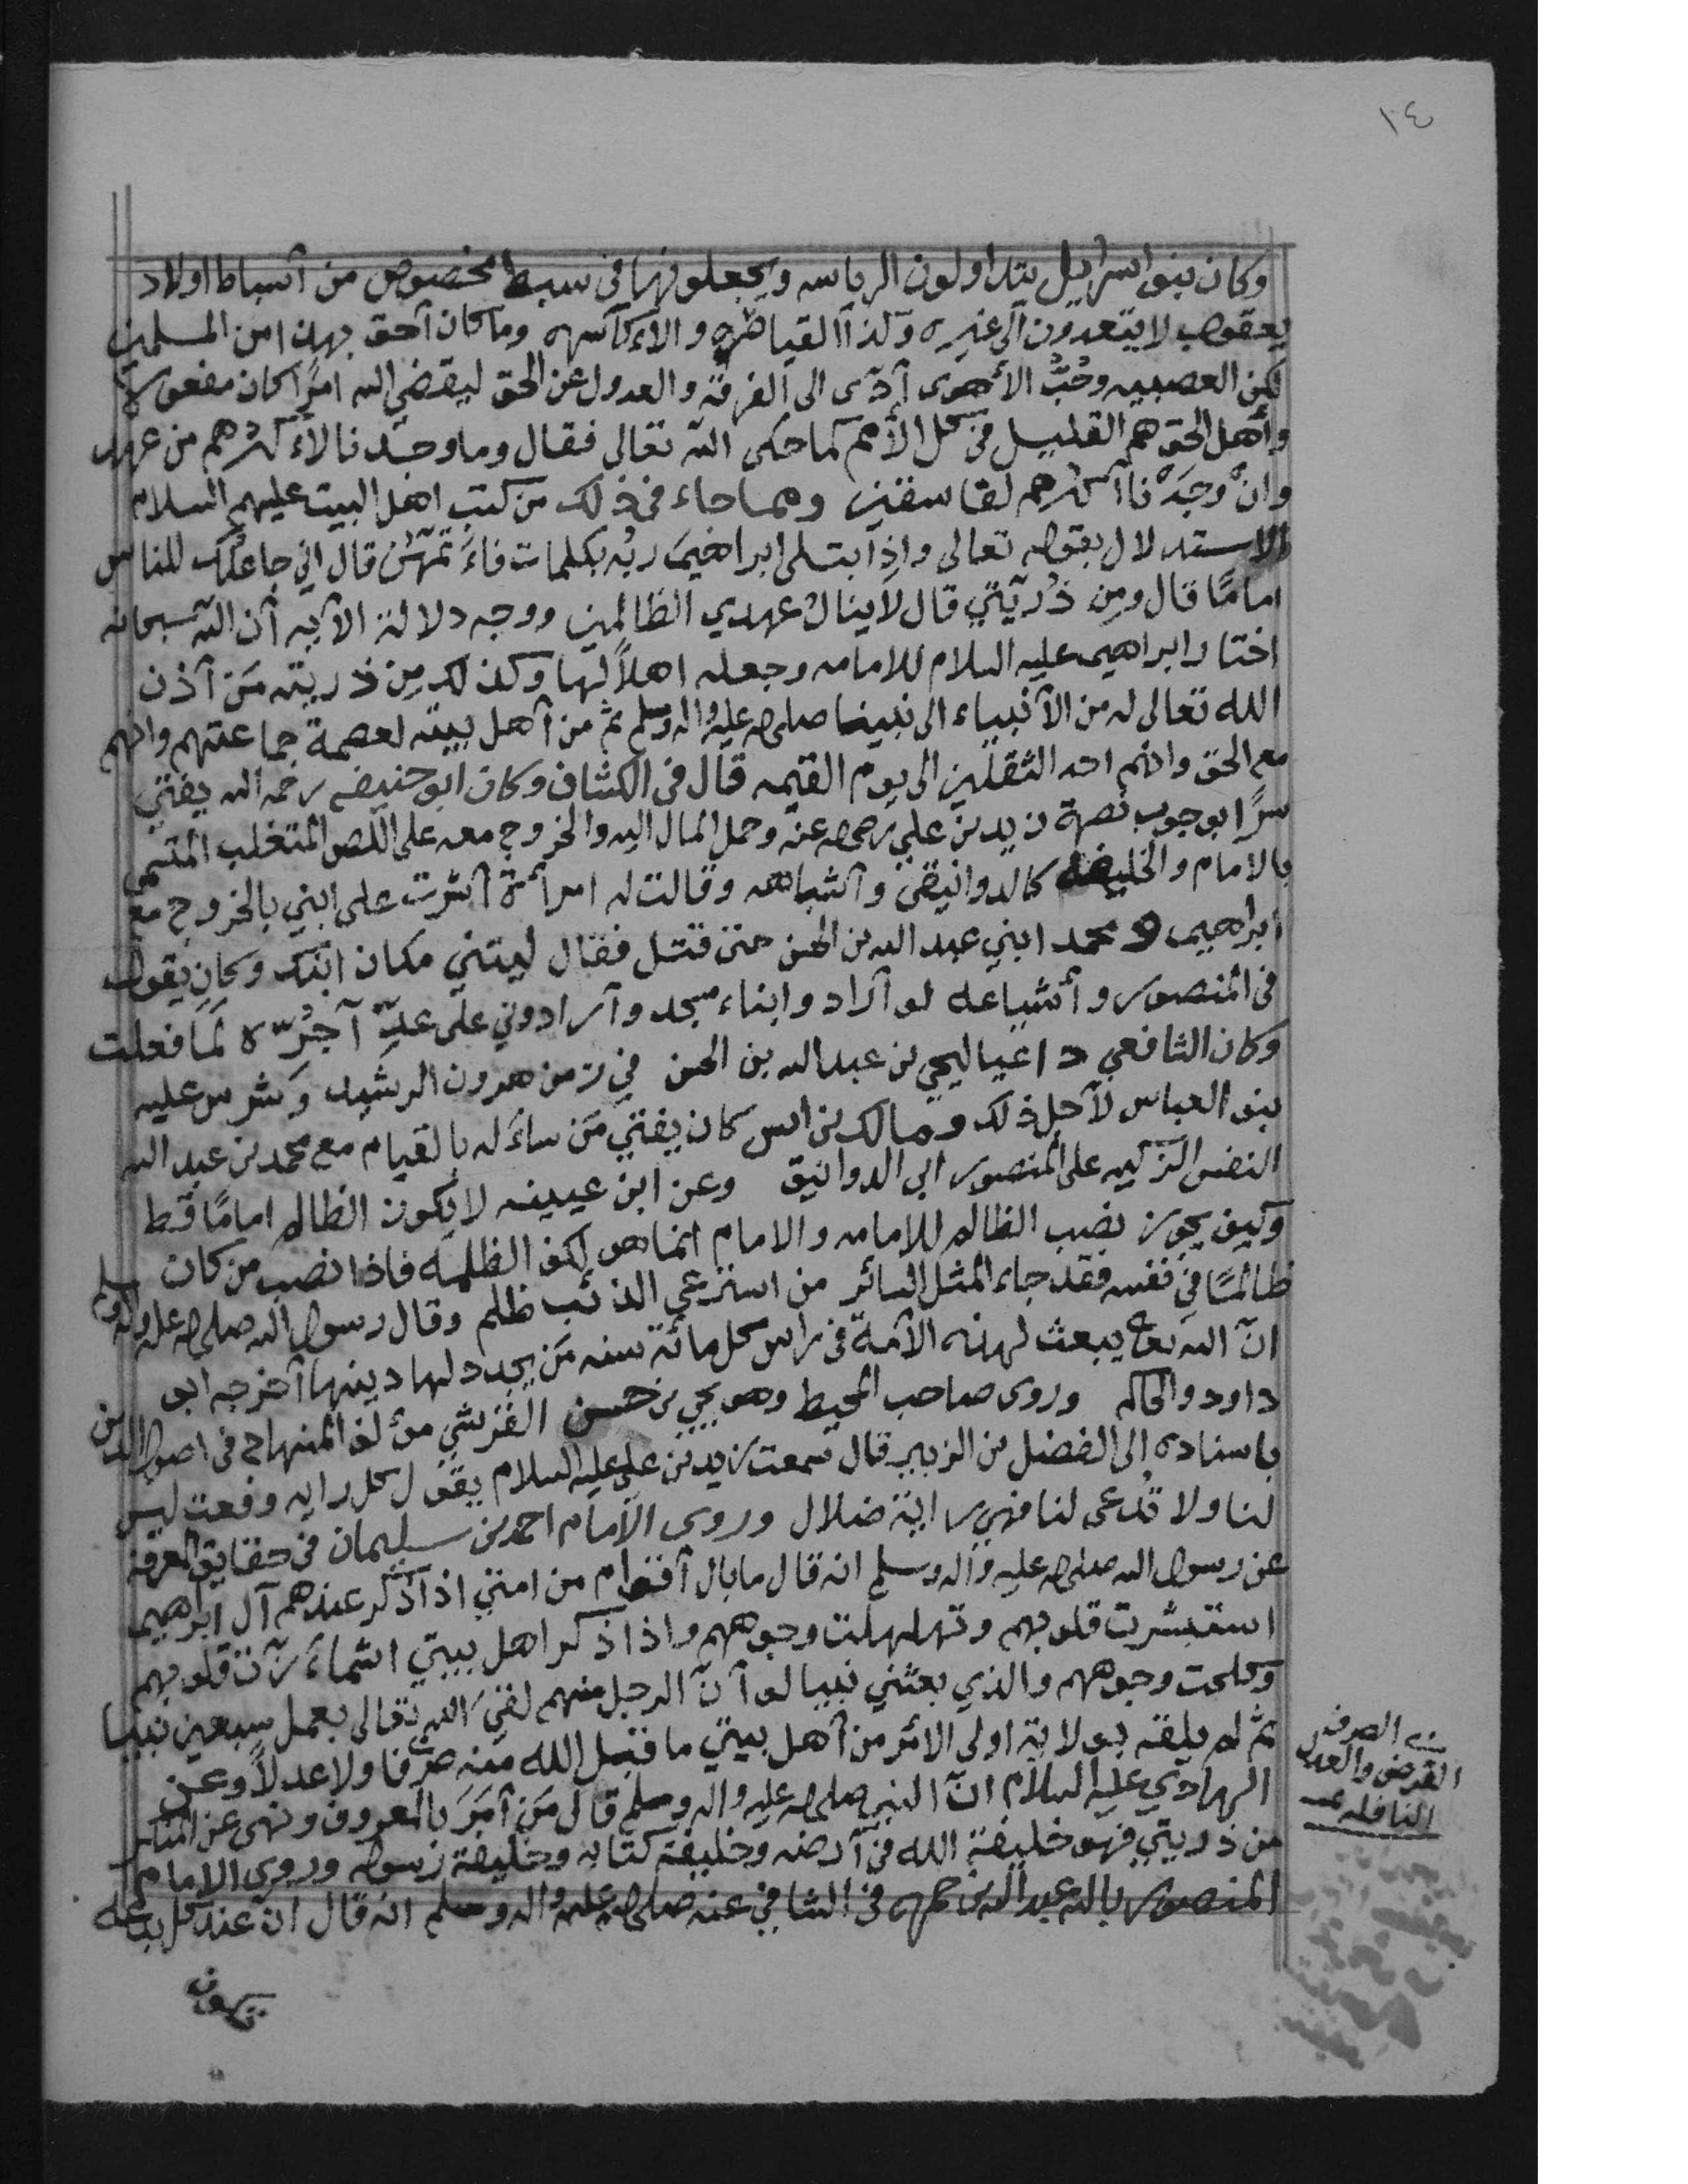 ١٤
وكان بنوا سرائيل يتداولون الرياسه ويجعلونها في سبط مخصوص من أسباط اولاد
يعقوب لا يتعدون الى غيره وكذا القياصره والاكاسره وما كان أحق بهذا من المسلمين
لكن العصبيه وحُبُّ الأهوى أدّى الى الفرقة والعدول عن الحق ليقضي الله امرًا كان مفعولا
وأهل الحق هم القليل في كل الأمم كما حكى الله تعالى فقال وما وجدنا لأكثرهم من عهد
وانْ وجَدْنا أكثرهم لفاسقين ومما جاء في ذلك من كتب اهل البيت عليهم السلام
الاستدلال بقوله تعالى واذا بتلى ابراهيمَ ربُه بكلمات فأتمهنّ قال اني جاعلك للناس
امامًا قال ومِن ذُريّتي قال لا ينالُ عهدي الظالمين ووجه دلالة الآيه أن الله سبحانه
اختار ابراهيم عليه السلام للامامه وجعله اهلاً لها وكذلك مِن ذريته مَن أذن
الله تعالى له من الأنبياء الى نبينا صلى الله عليه واله وسلم ثم من أهل بيته لعصمة جماعتهم وانهم
مع الحق وانهم احد الثقلين الى يوم القيمه قال في الكشاف وكان ابو حنيفه رحمه الله يفتي
سرًا بوجوب نصرة زيد بن علي رضي الله عنه وحمل المال اليه والخروج معه على اللص المتغلب المتسمى
بالامام والخليفه كالدوانيقي وأشباهه وقالت له امرأة أشرت على ابني بالخروج مع
ابراهيم و محمد ابني عبد الله بن الحسن حتى قتل فقال ليتني مكان ابنك وكان يقول
في المنصور وأشياعه لو أرادوا بناء مسجد وأرادوني على عدِّ آجُرّه لَمَا فعلت
وكان الشافعي داعيا ليحيى بن عبد الله بن الحسن في زمن هرون الرشيد وشرس عليه
بنو العباس لأجل ذلك ومالك بن انس كان يفتي مَن سأله بالقيام مع محمد بن عبد الله
النفس الزكيه على المنصور ابي الدوانيق وعن ابن عيينه لا يكون الظالم امامًا قط
وكيف يجوز نصب الظالم للامامه والامام انما هو لكف الظلمه فاذا نصب من كان
ظالمًا في نفسه فقد جاء المثل السائر من استرعي الذئب ظلم وقال رسول الله صلى الله عليه واله وسلم
انّ الله تعالى يبعث لهذه الأمة في راس كل مائة سنه مَن يجدد لها دينها أخرجه ابو
داود والحاكم وروى صاحب المحيط وهو يحيى بن حسن القرشي مؤلف المنهاج في اصول الدين
باسناده الى الفضل بن الزبير قال سمعت زيد بن علي عليه السلام يقول كل رايه رفعت ليس
لنا ولا تُدعى لنا فهي راية ضلال وروى الامام احمد بن سليمان في حقايق المعرفة
عن رسول الله صلى الله عليه واله وسلم انه قال ما بال أقوام من امتي اذا ذُكر عندهم آل ابراهيم
استبشرت قلوبهم وتهللت وجوههم واذا ذكر اهل بيتي اشمأزّت قلوبهم
وكلحت وجوههم والذي بعثني نبيا لو أنّ الرجل منهم لقيَ الله تعالى بعمل سبعين نبيا
ثم لم يلقه بولاية اولى الأمر من أهل بيتي ما قبل الله منه صرفا ولا عدلاً وعن
الهادي عليه السلام انّ النبي صلى الله عليه واله وسلم قال مَن أمَرَ بالمعروف ونهى عن المنكر
من ذريتي فهو خليفة الله في أرضه وخليفة كتابه وخليفة رسوله وروى الامام
المنصور بالله عبد الله بن حمزه في الشافي عنه صلى الله عليه واله وسلم انه قال ان عند كل بدعه
الصرف
الفرض والعدل
النافله